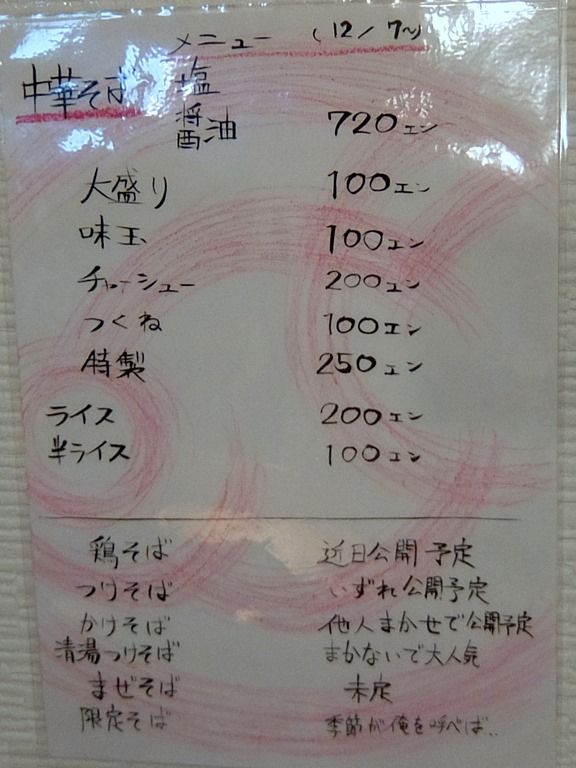 メニュー (12/7〜)
中華そば 塩
醤油 720エン
大盛り 100エン
味玉 100エン
チャーシュー 200エン
つくね 100エン
特製 250エン
ライス 200エン
半ライス 100エン
鶏そば 近日公開予定
つけそば いずれ公開予定
かけそば 他人まかせで公開予定
清湯つけそば まかないで大人気
まぜそば 未定
限定そば 季節が俺を呼べば..